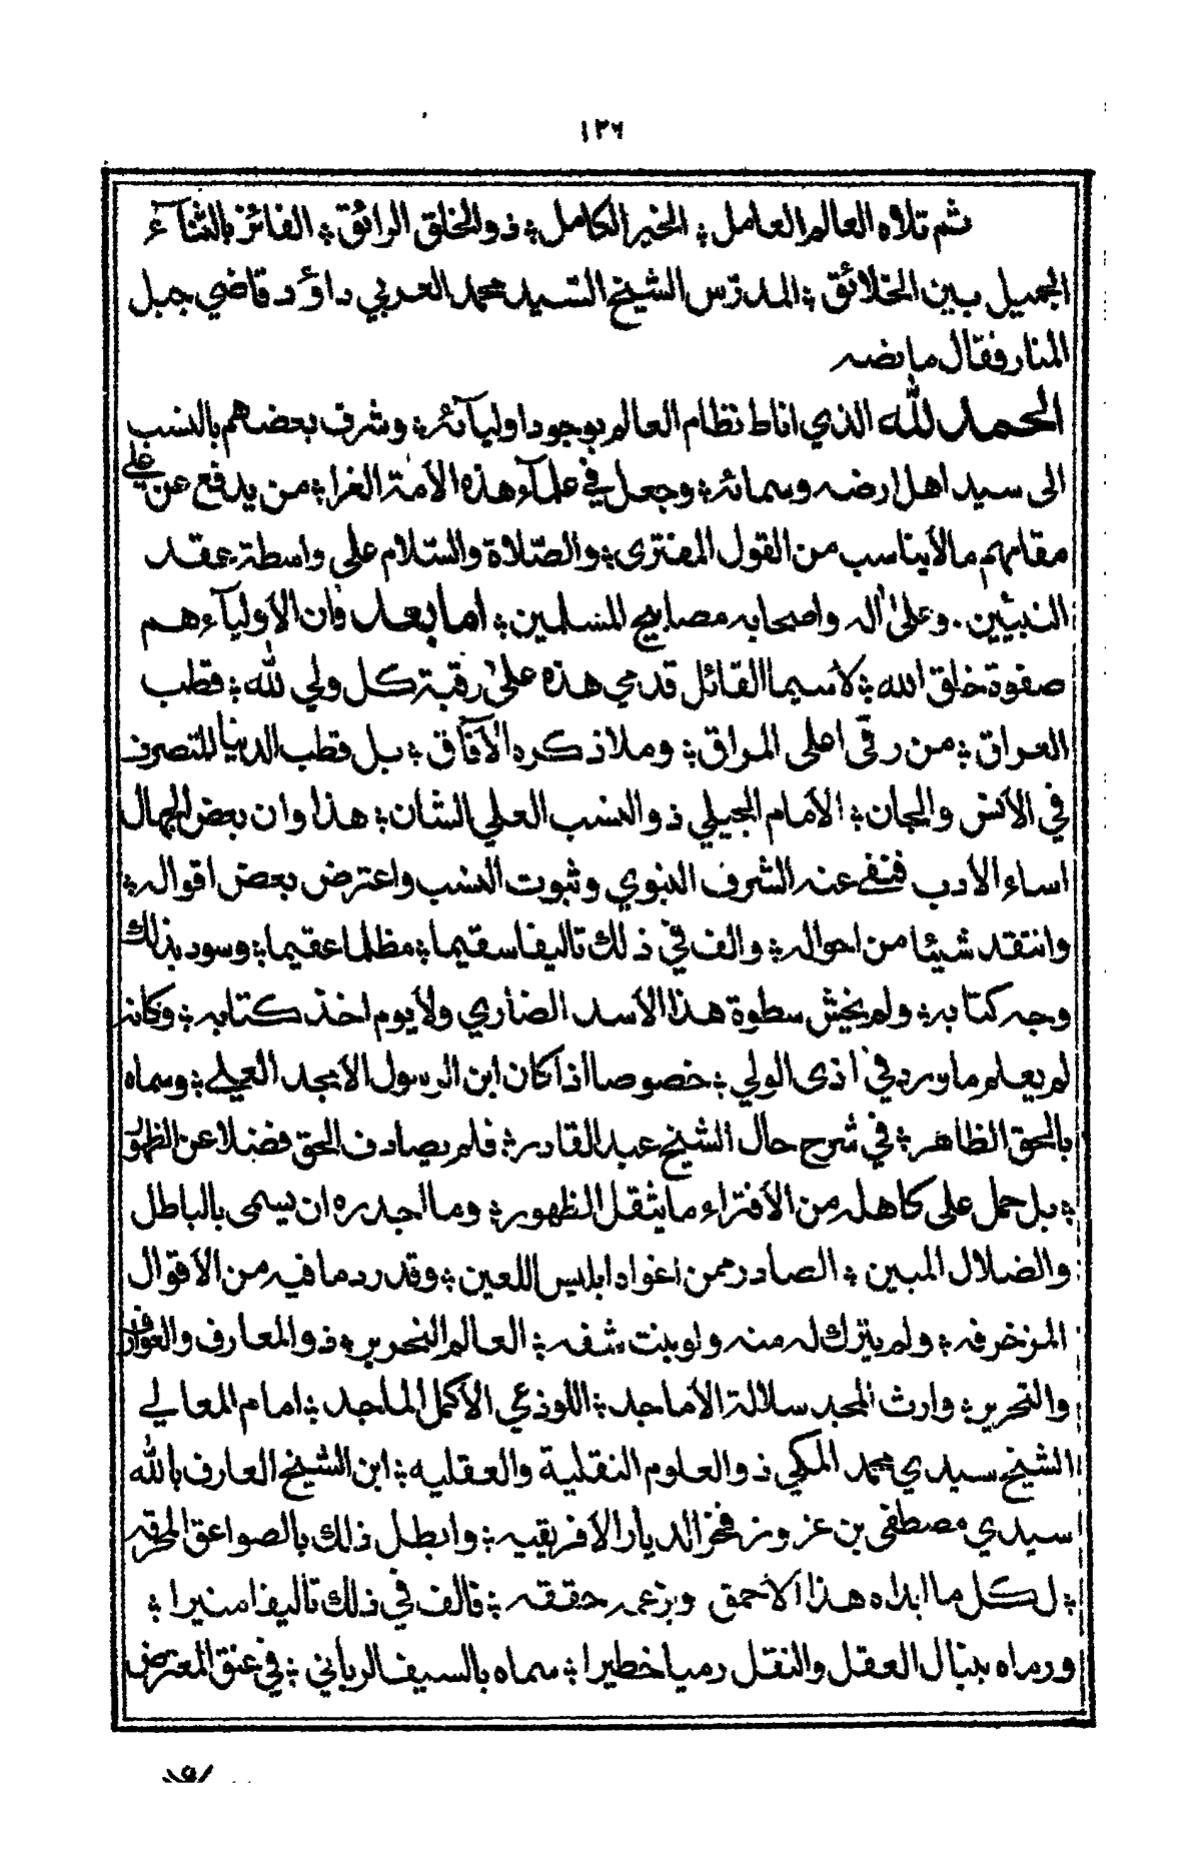 ١٣٦
ثم تلاه العالم العامل ؛ الخير الكامل ؛ ذوالخلق الرائق ؛ الفائز بالثنآء
الجميل بين الخلائق ؛ المدرّس الشيخ السّيد محمد العربي داوٗد قاضي جبل
المنار فقال ما نصه
الحمد لله الذي اناط نظام العالم بوجود اوليآئه ؛ وشرف بعضهم بالنسب
الى سيد اهل ارضه وسمائه ؛ وجعل في علمآء هذه الأمة الغرا ؛ من يدفع عن علي
مقامهم ما لايناسب من القول المفترى ؛ والصّلاة والسّلام على واسطة عقد
النبيّين . وعلىٰ اٰله واصحابه مصابيح المسلمين ؛ اما بعد فان الأوليآء هم
صفوة خلق الله ؛ لاسيما القائل قدمي هذه علىٰ رقبة كل ولي لله ؛ قطب
العراق ؛ من رقى اعلى المراق ؛ وملا ذكره الآفاق ؛ بل قطب الدنيا المتصرف
في الأنس والجان ؛ الأمام الجيلي ذوالنسب العلي الشان ؛ هذا وان بعض الجهال
اساء الأدب فنفى عنه الشرف النبوي وثبوت النسب واعترض بعض اقواله ؛
وانتقد شيئا من احواله ؛ والف في ذلك تاليفا سقيما ؛ مظلما عقيما ؛ وسود بذلك
وجه كتابه ؛ ولم يخش سطوة هذا الأسد الضاري ولايوم اخذ كتابه ؛ وكانه
لم يعلم ما ورد في أذى الولي ؛ خصوصا اذا كان ابن الرسول الأمجد العلي ؛ وسماه
بالحق الظاهر ؛ في شرح حال الشيخ عبد القادر ؛ فلم يصادف الحق فضلا عن الظهور
؛ بل حمل على كاهله من الأفتراء ما يثقل الظهور ؛ وما اجدره ان يسمى بالباطل
والضلال المبين ؛ الصادر ممن اغواه ابليس اللعين ؛ وقد رد ما فيه من الأقوال
المزخرفه ؛ ولم يترك له منه ولو بنت شفه ؛ العالم النحرير ؛ ذوالمعارف والعوارف
والتحرير ؛ وارث المجد سلالة الأماجد ؛ اللوذعي الأكمل الماجد ؛ امام المعالي
الشيخ سيدي محمد المكي ذوالعلوم النقلية والعقليه ؛ ابن الشيخ العارف بالله
سيدي مصطفى بن عزوز فخر الديار الافريقيه ؛ وابطل ذلك بالصواعق المحرقه
؛ لكل ما ابداه هذا الأحمق وبزعمه حققه ؛ فالف في ذلك تأليفا منيرا ؛
ورماه بنبال العقل والنقل رميا خطيرا ؛ سماه بالسيف الرباني ؛ في عنق المعترض